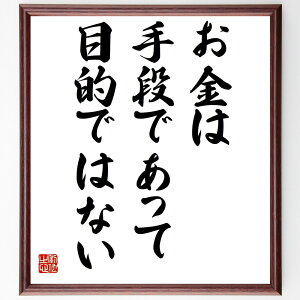 お金は
手段であって
目的ではない